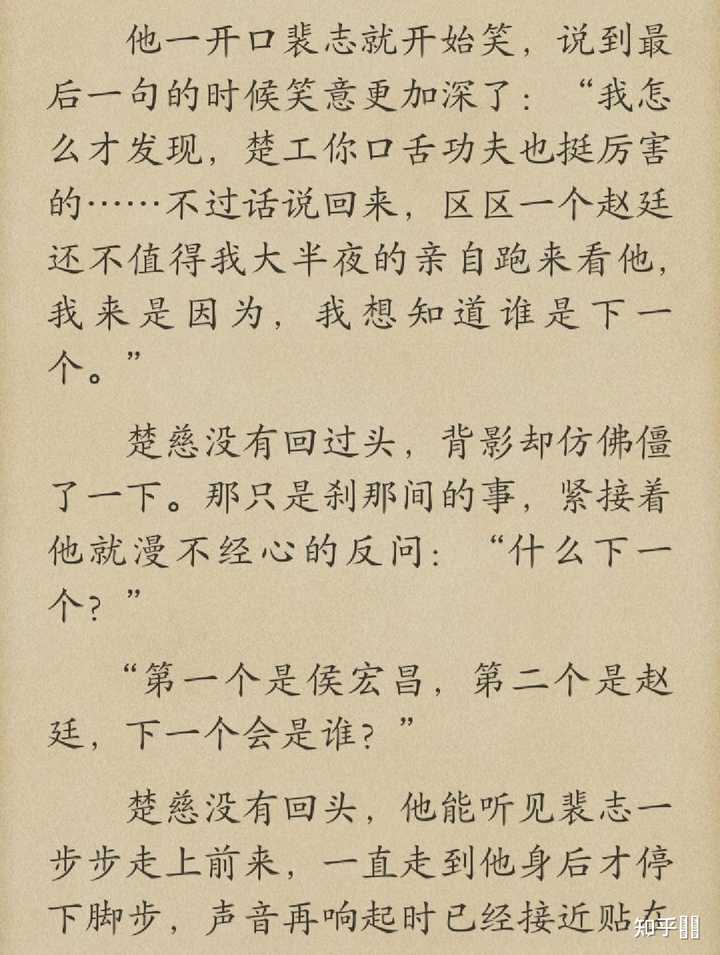 他一开口裴志就开始笑，说到最
后一句的时候笑意更加深了：“我怎
么才发现，楚工你口舌功夫也挺厉害
的……不过话说回来，区区一个赵廷
还不值得我大半夜的亲自跑来看他，
我来是因为，我想知道谁是下一
个。”
楚慈没有回过头，背影却仿佛僵
了一下。那只是刹那间的事，紧接着
他就漫不经心的反问：“什么下一
个？”
“第一个是侯宏昌，第二个是赵
廷，下一个会是谁？”
楚慈没有回头，他能听见裴志一
步步走上前来，一直走到他身后才停
下脚步，声音再响起时已经接近贴在
知乎